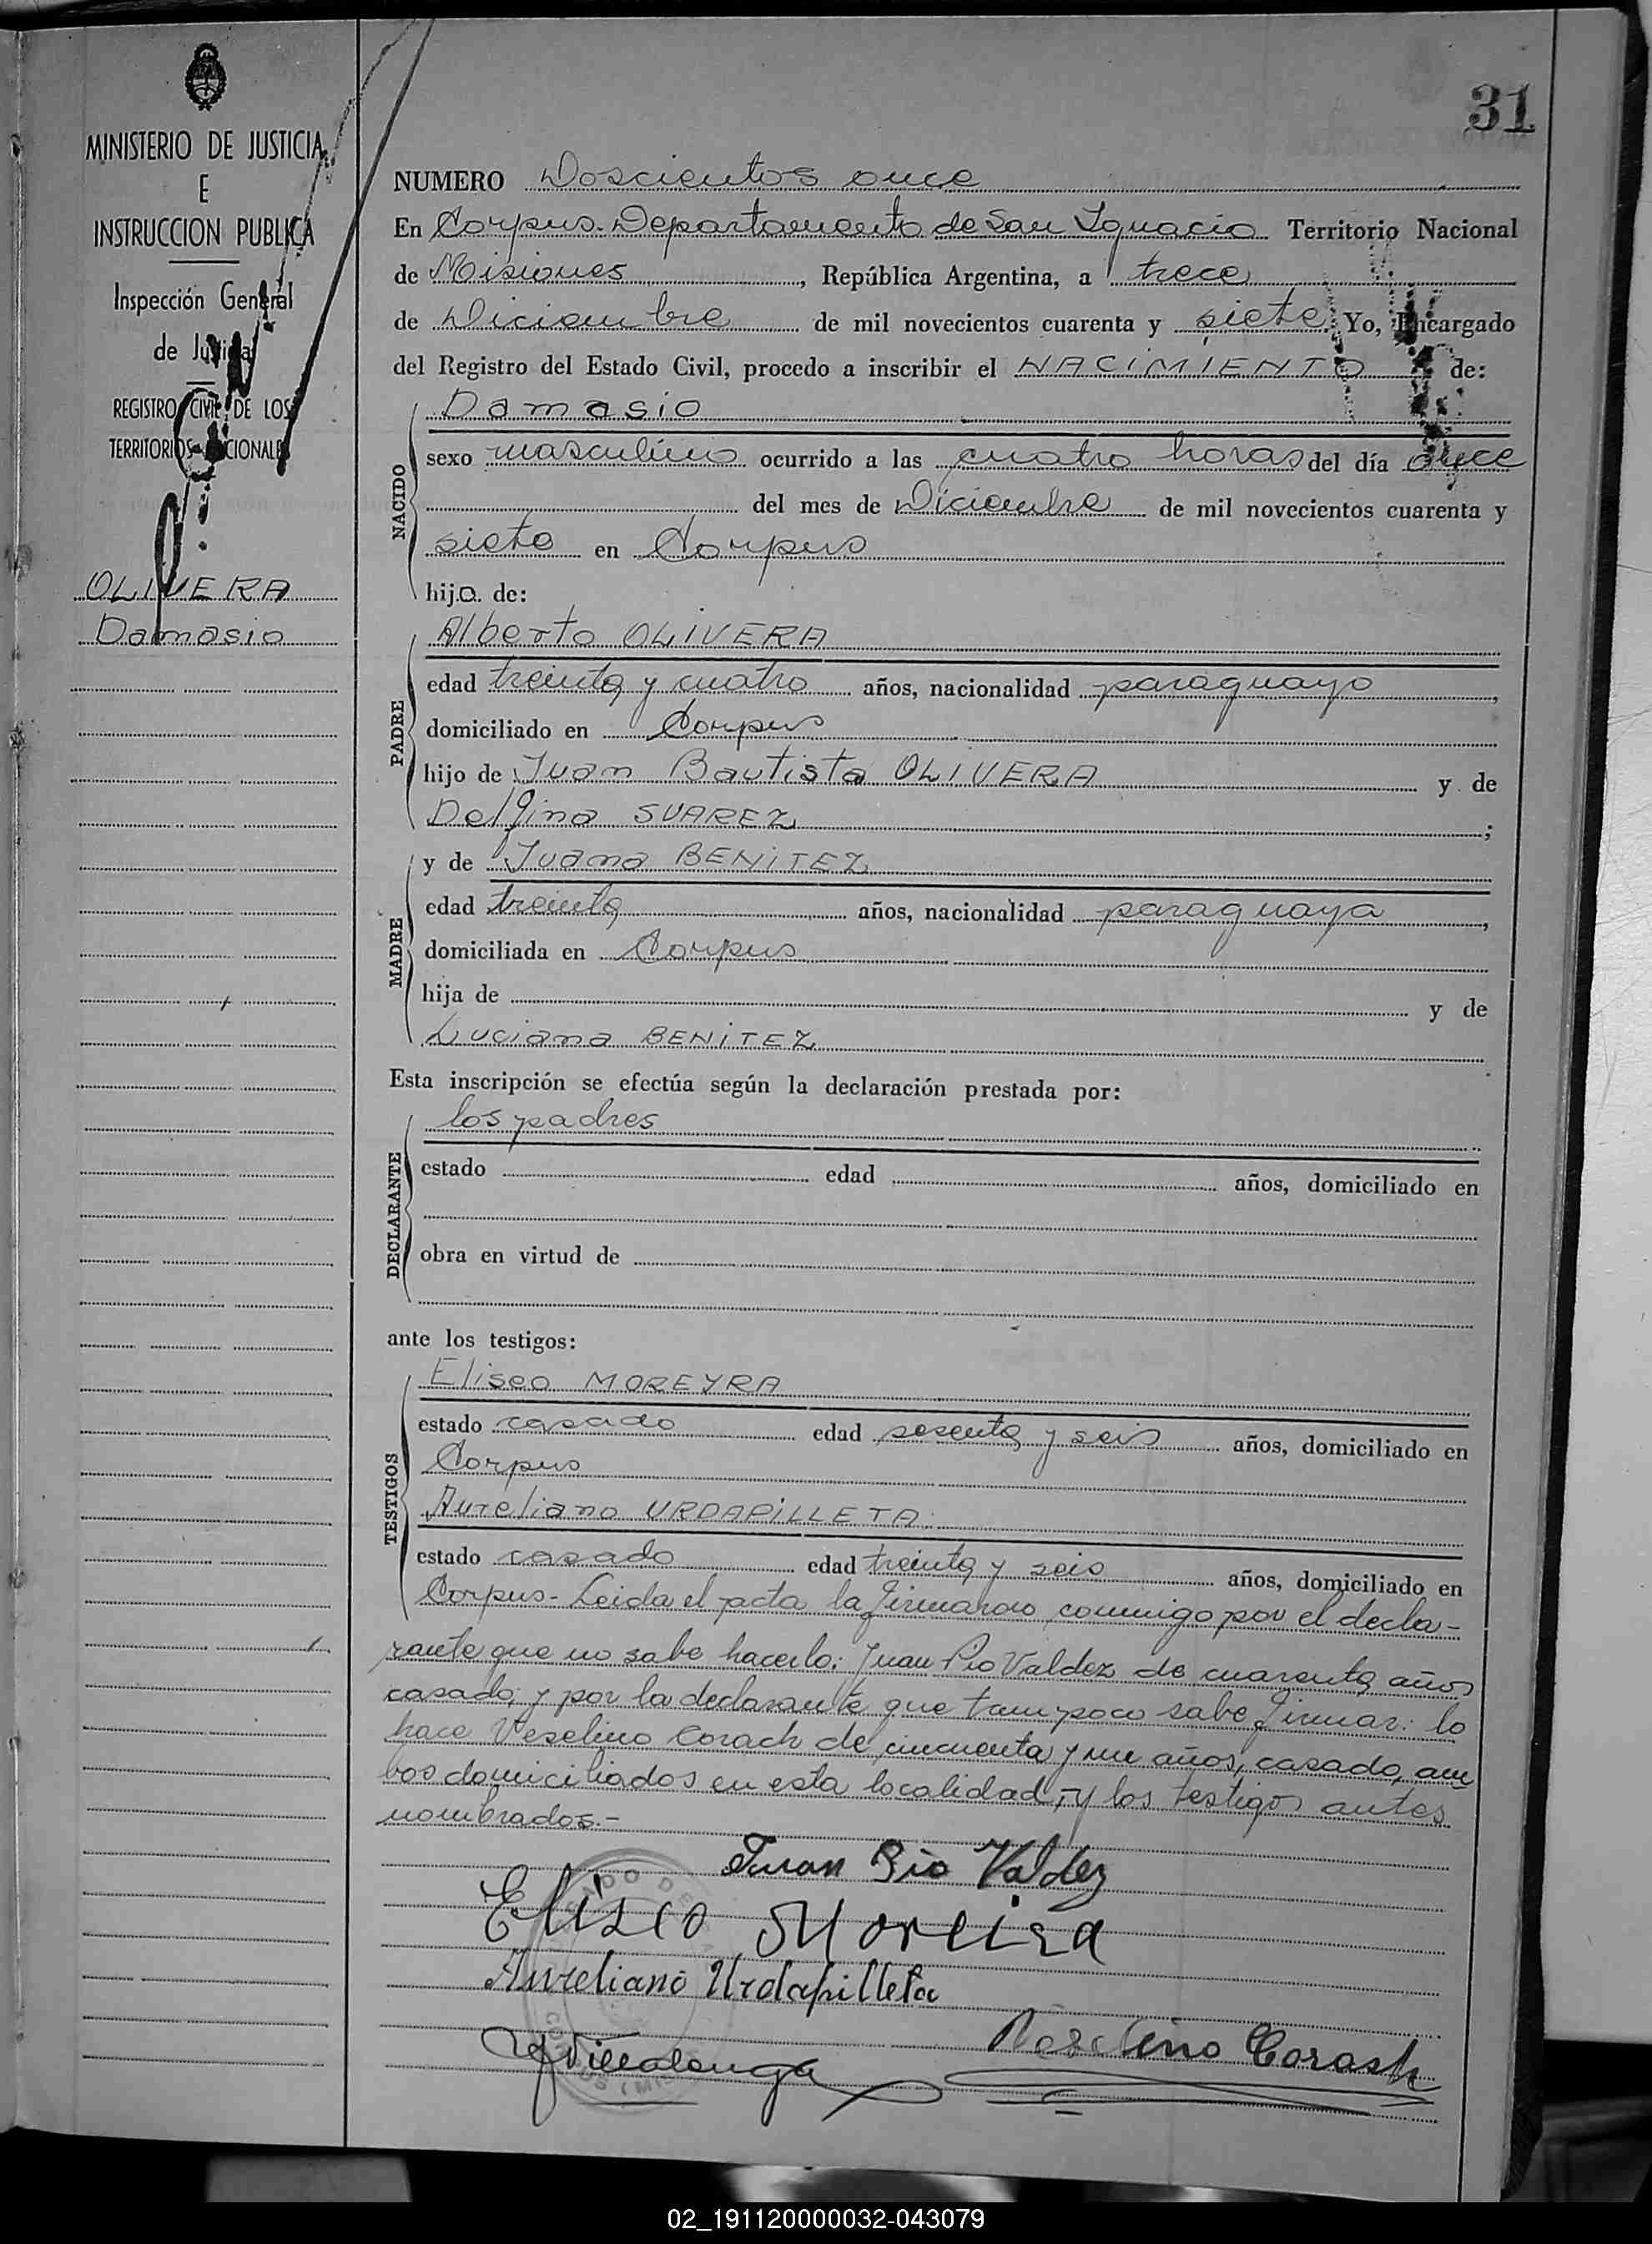 31
MINISTERIO DE JUSTICIA
E
INSTRUCCION PUBLICA
Inspección General
de Justicia
REGISTRO CIVIL DE LOS
TERRITORIOS NACIONALES
OLIVERA
Damasio
NUMERO Doscientos once
En Corpus-Departamento de San Ignacio Territorio Nacional
de Misiones, República Argentina, a trece
de Diciembre de mil novecientos cuarenta y siete. Yo, Encargado
del Registro del Estado Civil, procedo a inscribir el NACIMIENTO de:
NACIDO
Damasio
sexo masculino ocurrido a las cuatro horas del día once
del mes de Diciembre de mil novecientos cuarenta y
siete en Corpus
hijo. de:
PADRE
Alberto OLIVERA
edad treinta y cuatro años, nacionalidad paraguayo,
domiciliado en Corpus
hijo de Juan Bautista OLIVERA y de
Delfina SUAREZ;
MADRE
y de Juana BENITEZ
edad treinta años, nacionalidad paraguaya,
domiciliada en Corpus
hija de y de
Luciana BENITEZ
Esta inscripción se efectúa según la declaración prestada por:
DECLARANTE
los padres
estado edad años, domiciliado en
obra en virtud de
ante los testigos:
TESTIGOS
Eliseo MOREYRA
estado casado edad sesenta y seis años, domiciliado en
Corpus
Aureliano URDAPILLETA
estado casado edad treinta y seis años, domiciliado en
Corpus-Leida el acta la firmaron conmigo por el decla-
rante que no sabe hacerlo: Juan Pio Valdez de cuarenta años
casado, y por la declarante que tampoco sabe firmar: lo
hace Veselino Corach de cincuenta y un años, casado, am
bos domiciliados en esta localidad, y los testigos antes
nombrados.-
Juan Pio Valdez
Eliseo Moreira
Aureliano Urdapilleta
Veselino Corach
Villalonga
02_191120000032-043079